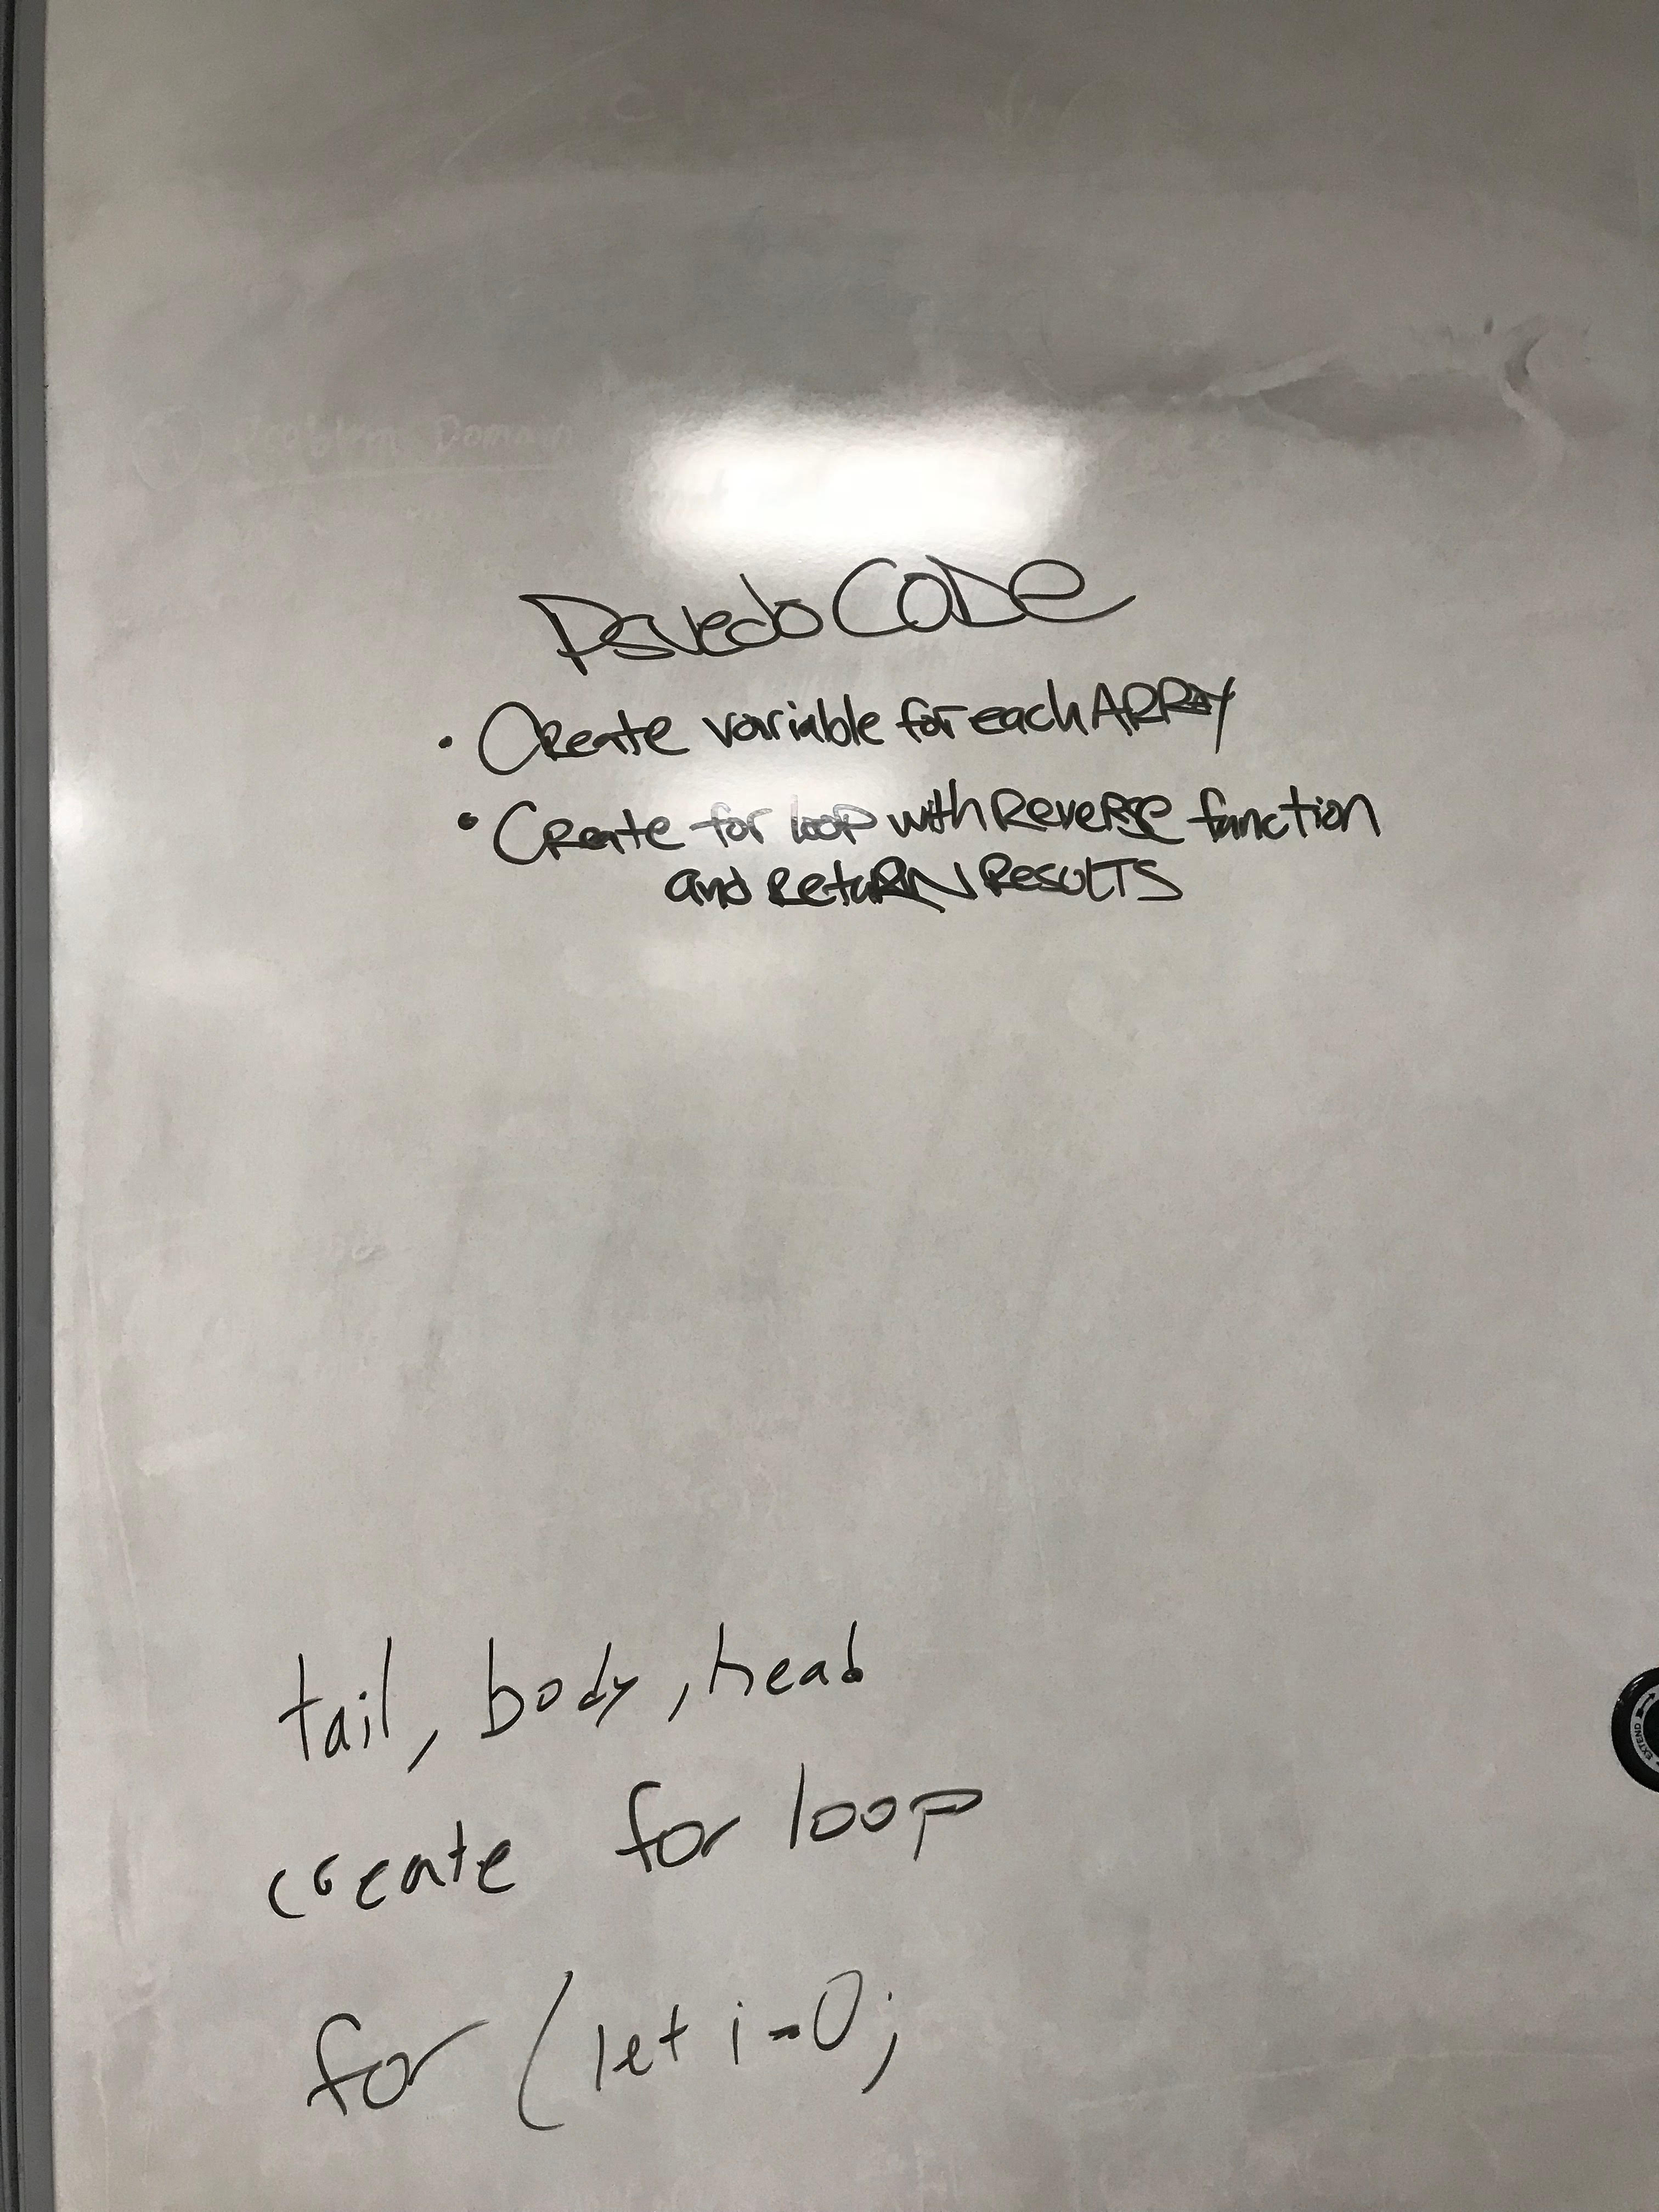 Problem Domain
PsuedoCODe
• Create variable for each ARRAY
• Create for loop with Reverse function
and RetuRN ResulTS
tail, body, head
create for loop
for (let i=0;
EXTEND